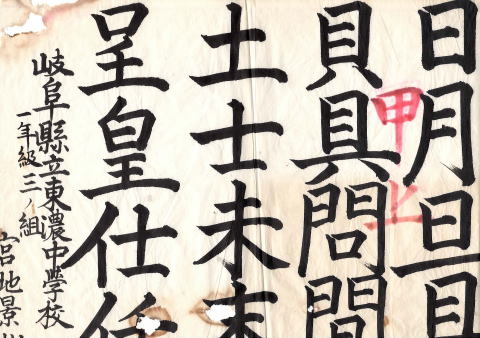 日月旦具
貝具問間
土士未末
呈皇仕任
甲上
岐阜縣立東濃中學校
一年級三ノ組
宮地景